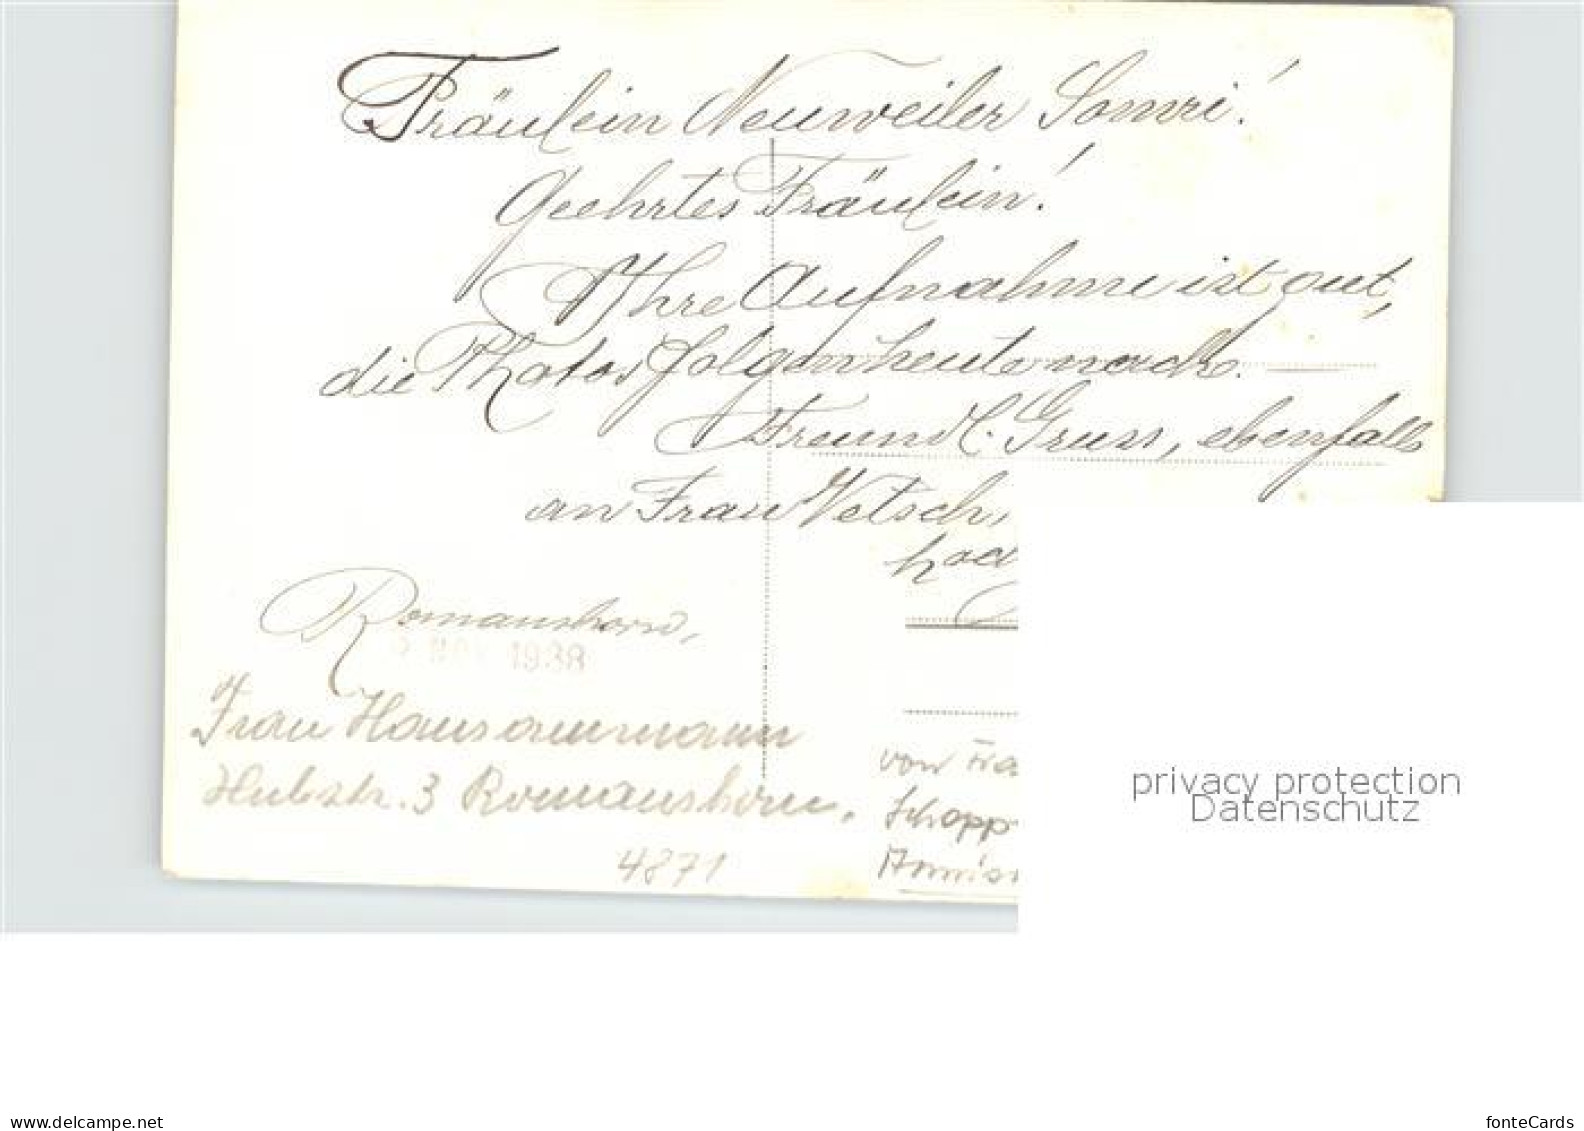 Fräulein Neuweiler Somri!
Geehrtes Fräulein!
Ihre Aufnahme ist gut,
die Photos folgen heute noch.
Freundl. Gruss, ebenfalls
an Frau Vetsch,
hoc
Romanshorn,
2 NOV 1938
Frau Hausammann
Hubstr. 3 Romanshorn.
4871
von Fra
Schopp
privacy protection
Datenschutz
www.delcampe.net
fonteCards